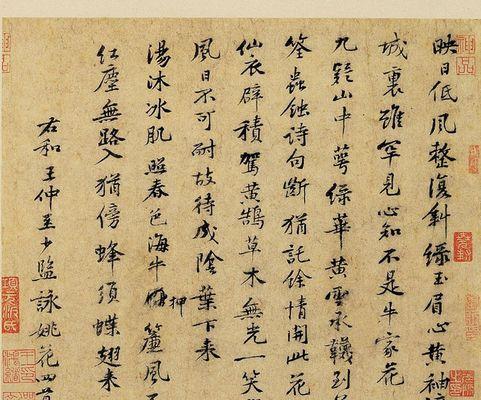 映日低風整復斜綠玉眉心黃袖
城裏雖罕見心知不是牛家花
九疑山中萼綠華黃雲承韈到
筌蟲蝕詩句斷猶託餘情開此花
仙衣辟積駕黃鵠草木無光一笑
風日不可耐故待成陰葉下來
湯沐冰肌照春色海牛押簾風
紅塵無路入猶傍蜂須蝶翅來
右和王仲至少監詠姚花四首